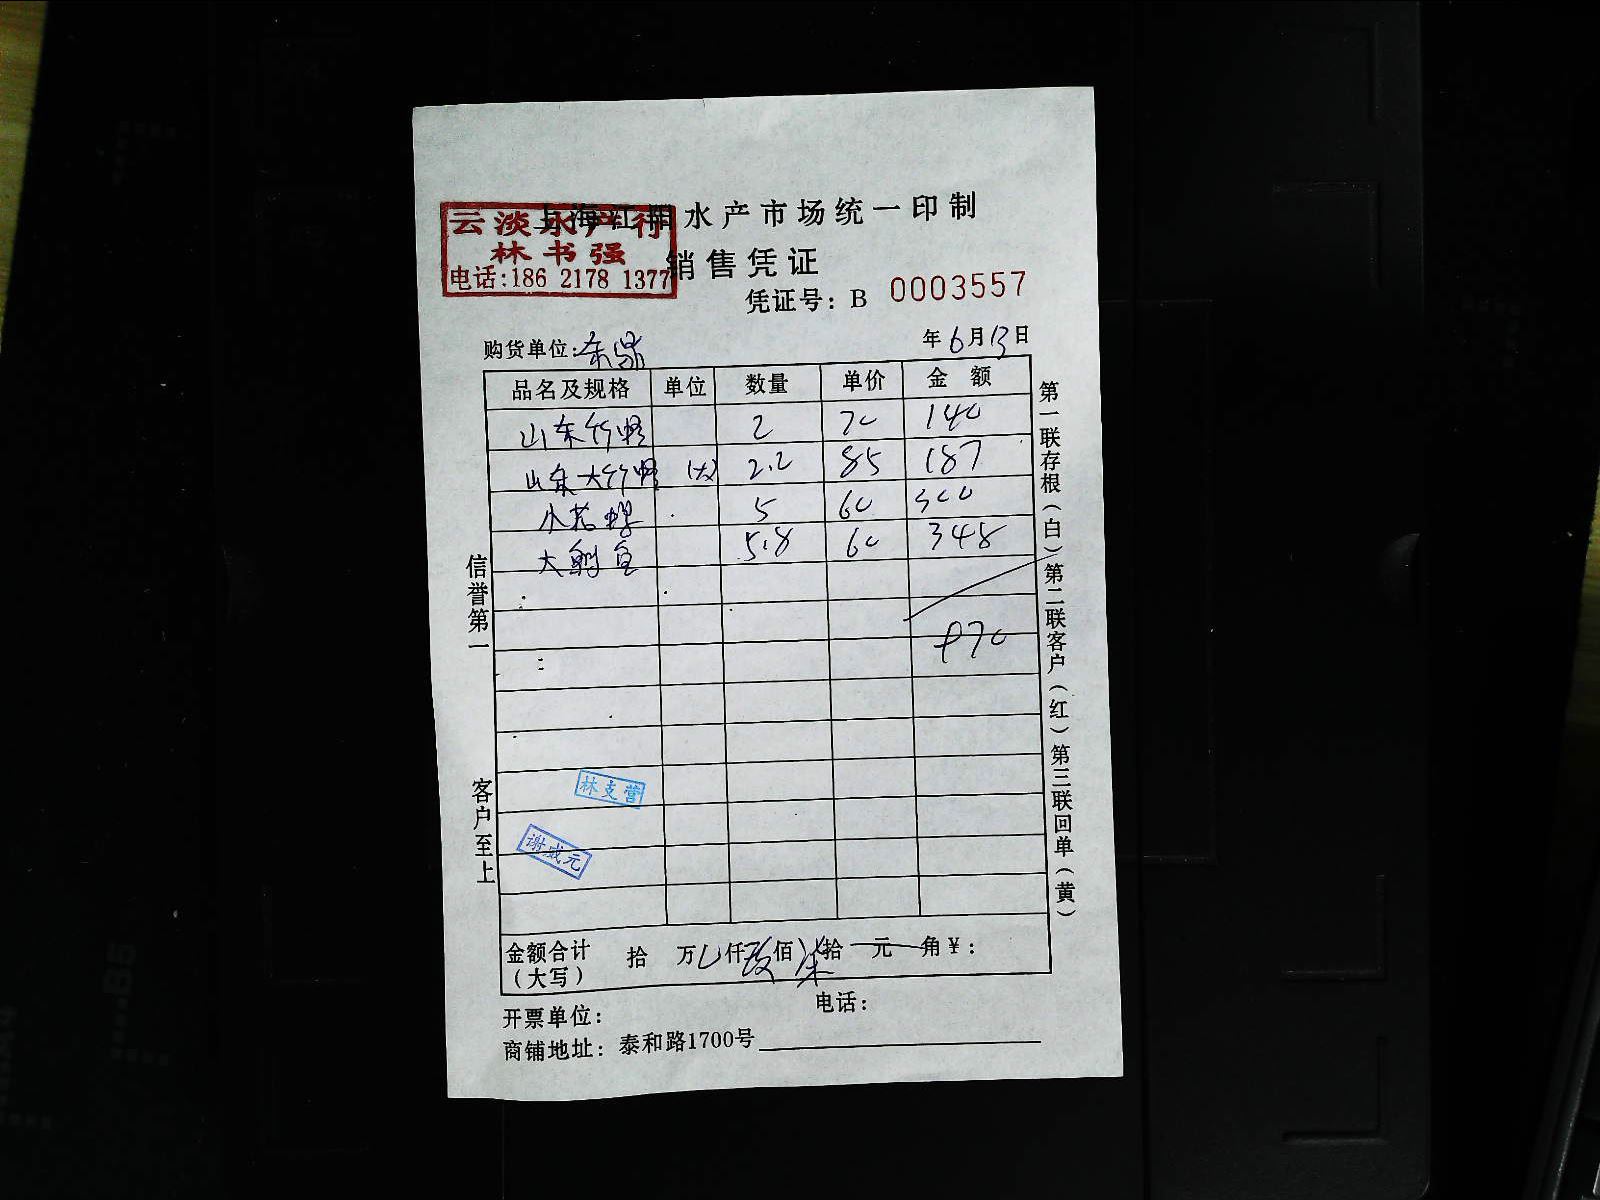 上海江阳水产市场统一印制
云淡水产行
林书强
电话:186 2178 1377
销售凭证
凭证号: B 0003557
购货单位:
年6月13日
品名及规格 单位 数量 单价 金额
山东竹蛏 2 70 140
山东大竹蛏 (大) 2.2 85 187
小 5 60 300
大鲷鱼 5.8 60 348
970
信誉第一
客户至上
第一联存根(白)第二联客户(红)第三联回单(黄)
林支营
谢成元
金额合计 拾 万 仟 玖 佰 柒 拾 元 角 ¥:
(大写)
开票单位: 电话:
商铺地址: 泰和路1700号